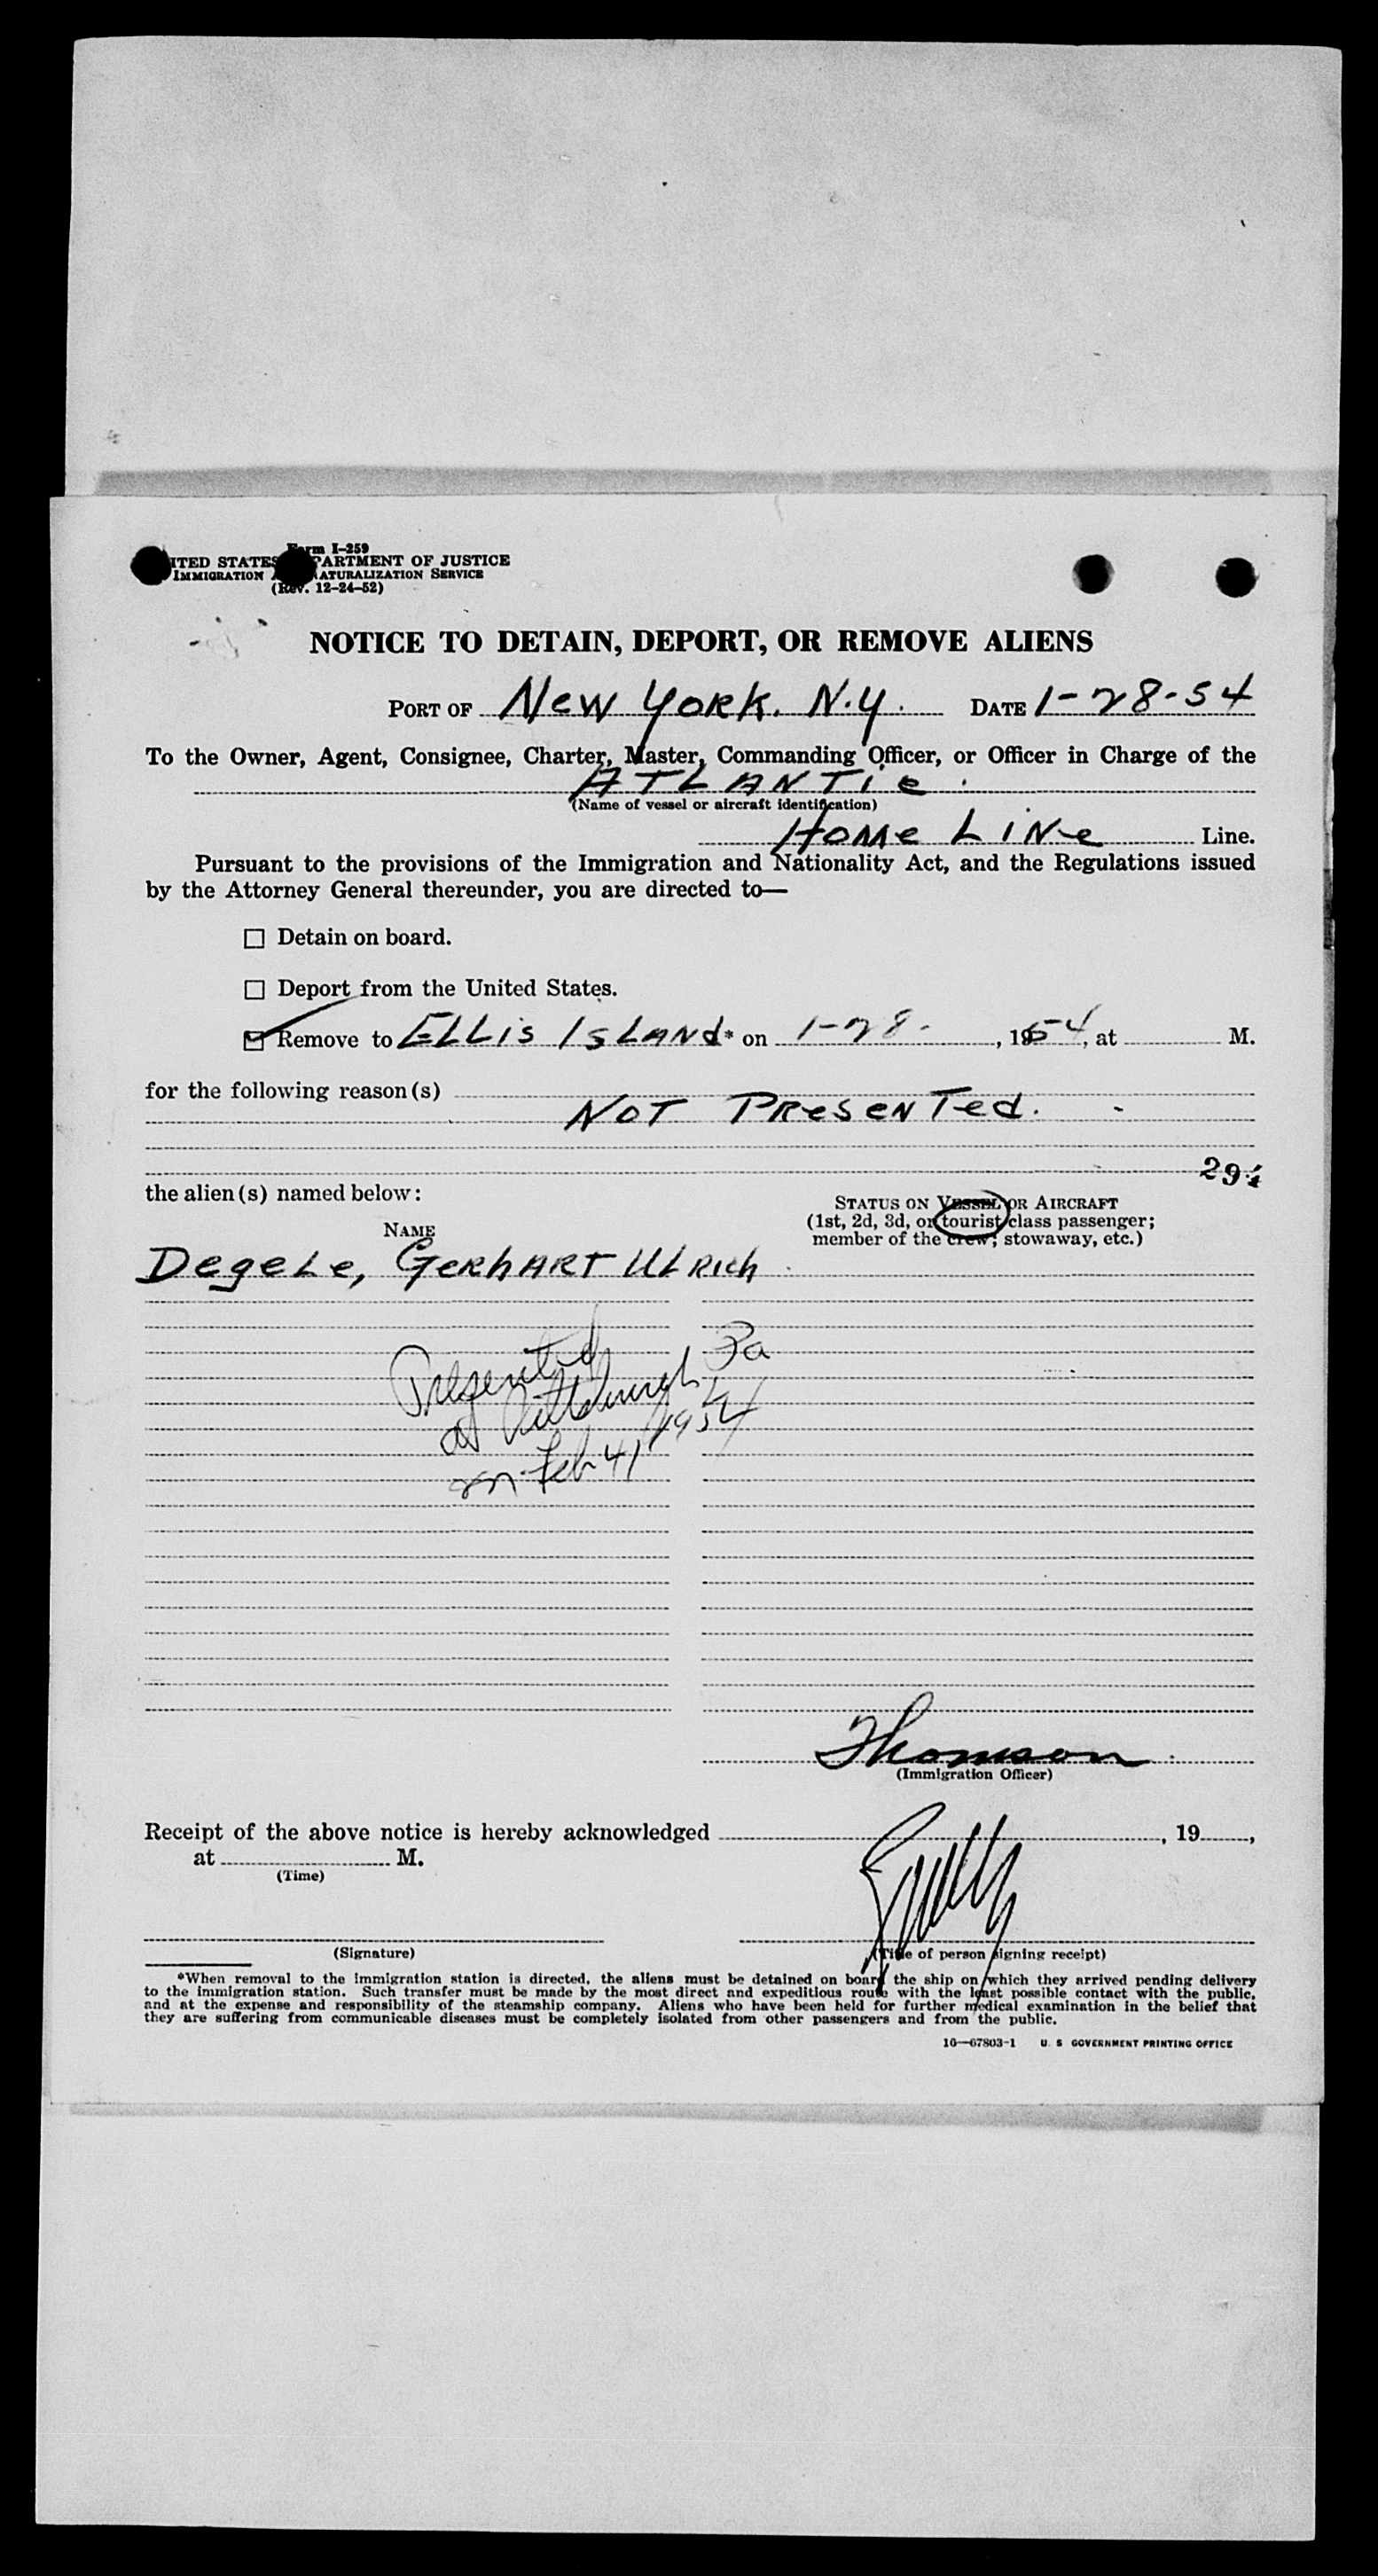 Form I-259
ITED STATES PARTMENT OF JUSTICE
IMMIGRATION ATURALIZATION SERVICE
(Rev. 12-24-52)
NOTICE TO DETAIN, DEPORT, OR REMOVE ALIENS
PORT OF New York, N.Y. DATE 1-28-54
To the Owner, Agent, Consignee, Charter, Master, Commanding Officer, or Officer in Charge of the
ATLANTic
(Name of vessel or aircraft identification)
Home LiNe Line.
Pursuant to the provisions of the Immigration and Nationality Act, and the Regulations issued
by the Attorney General thereunder, you are directed to—
☐ Detain on board.
☐ Deport from the United States.
☑ Remove to ELLis ISLANd* on 1-28-, 1954, at M.
for the following reason(s)
NOT PReseNTed.
294
the alien(s) named below:
STATUS ON VESSEL OR AIRCRAFT
(1st, 2d, 3d, or tourist class passenger;
NAME
member of the crew; stowaway, etc.)
DegeLe, GeRhART ULRich
Presented
at Pittsburgh Pa
on Feb 4, 1954
Thomson
(Immigration Officer)
Receipt of the above notice is hereby acknowledged , 19 ,
at M.
(Time)
(Signature)
(Title of person signing receipt)
*When removal to the immigration station is directed, the aliens must be detained on board the ship on which they arrived pending delivery
to the immigration station. Such transfer must be made by the most direct and expeditious route with the least possible contact with the public,
and at the expense and responsibility of the steamship company. Aliens who have been held for further medical examination in the belief that
they are suffering from communicable diseases must be completely isolated from other passengers and from the public.
16—67803-1 U. S GOVERNMENT PRINTING OFFICE